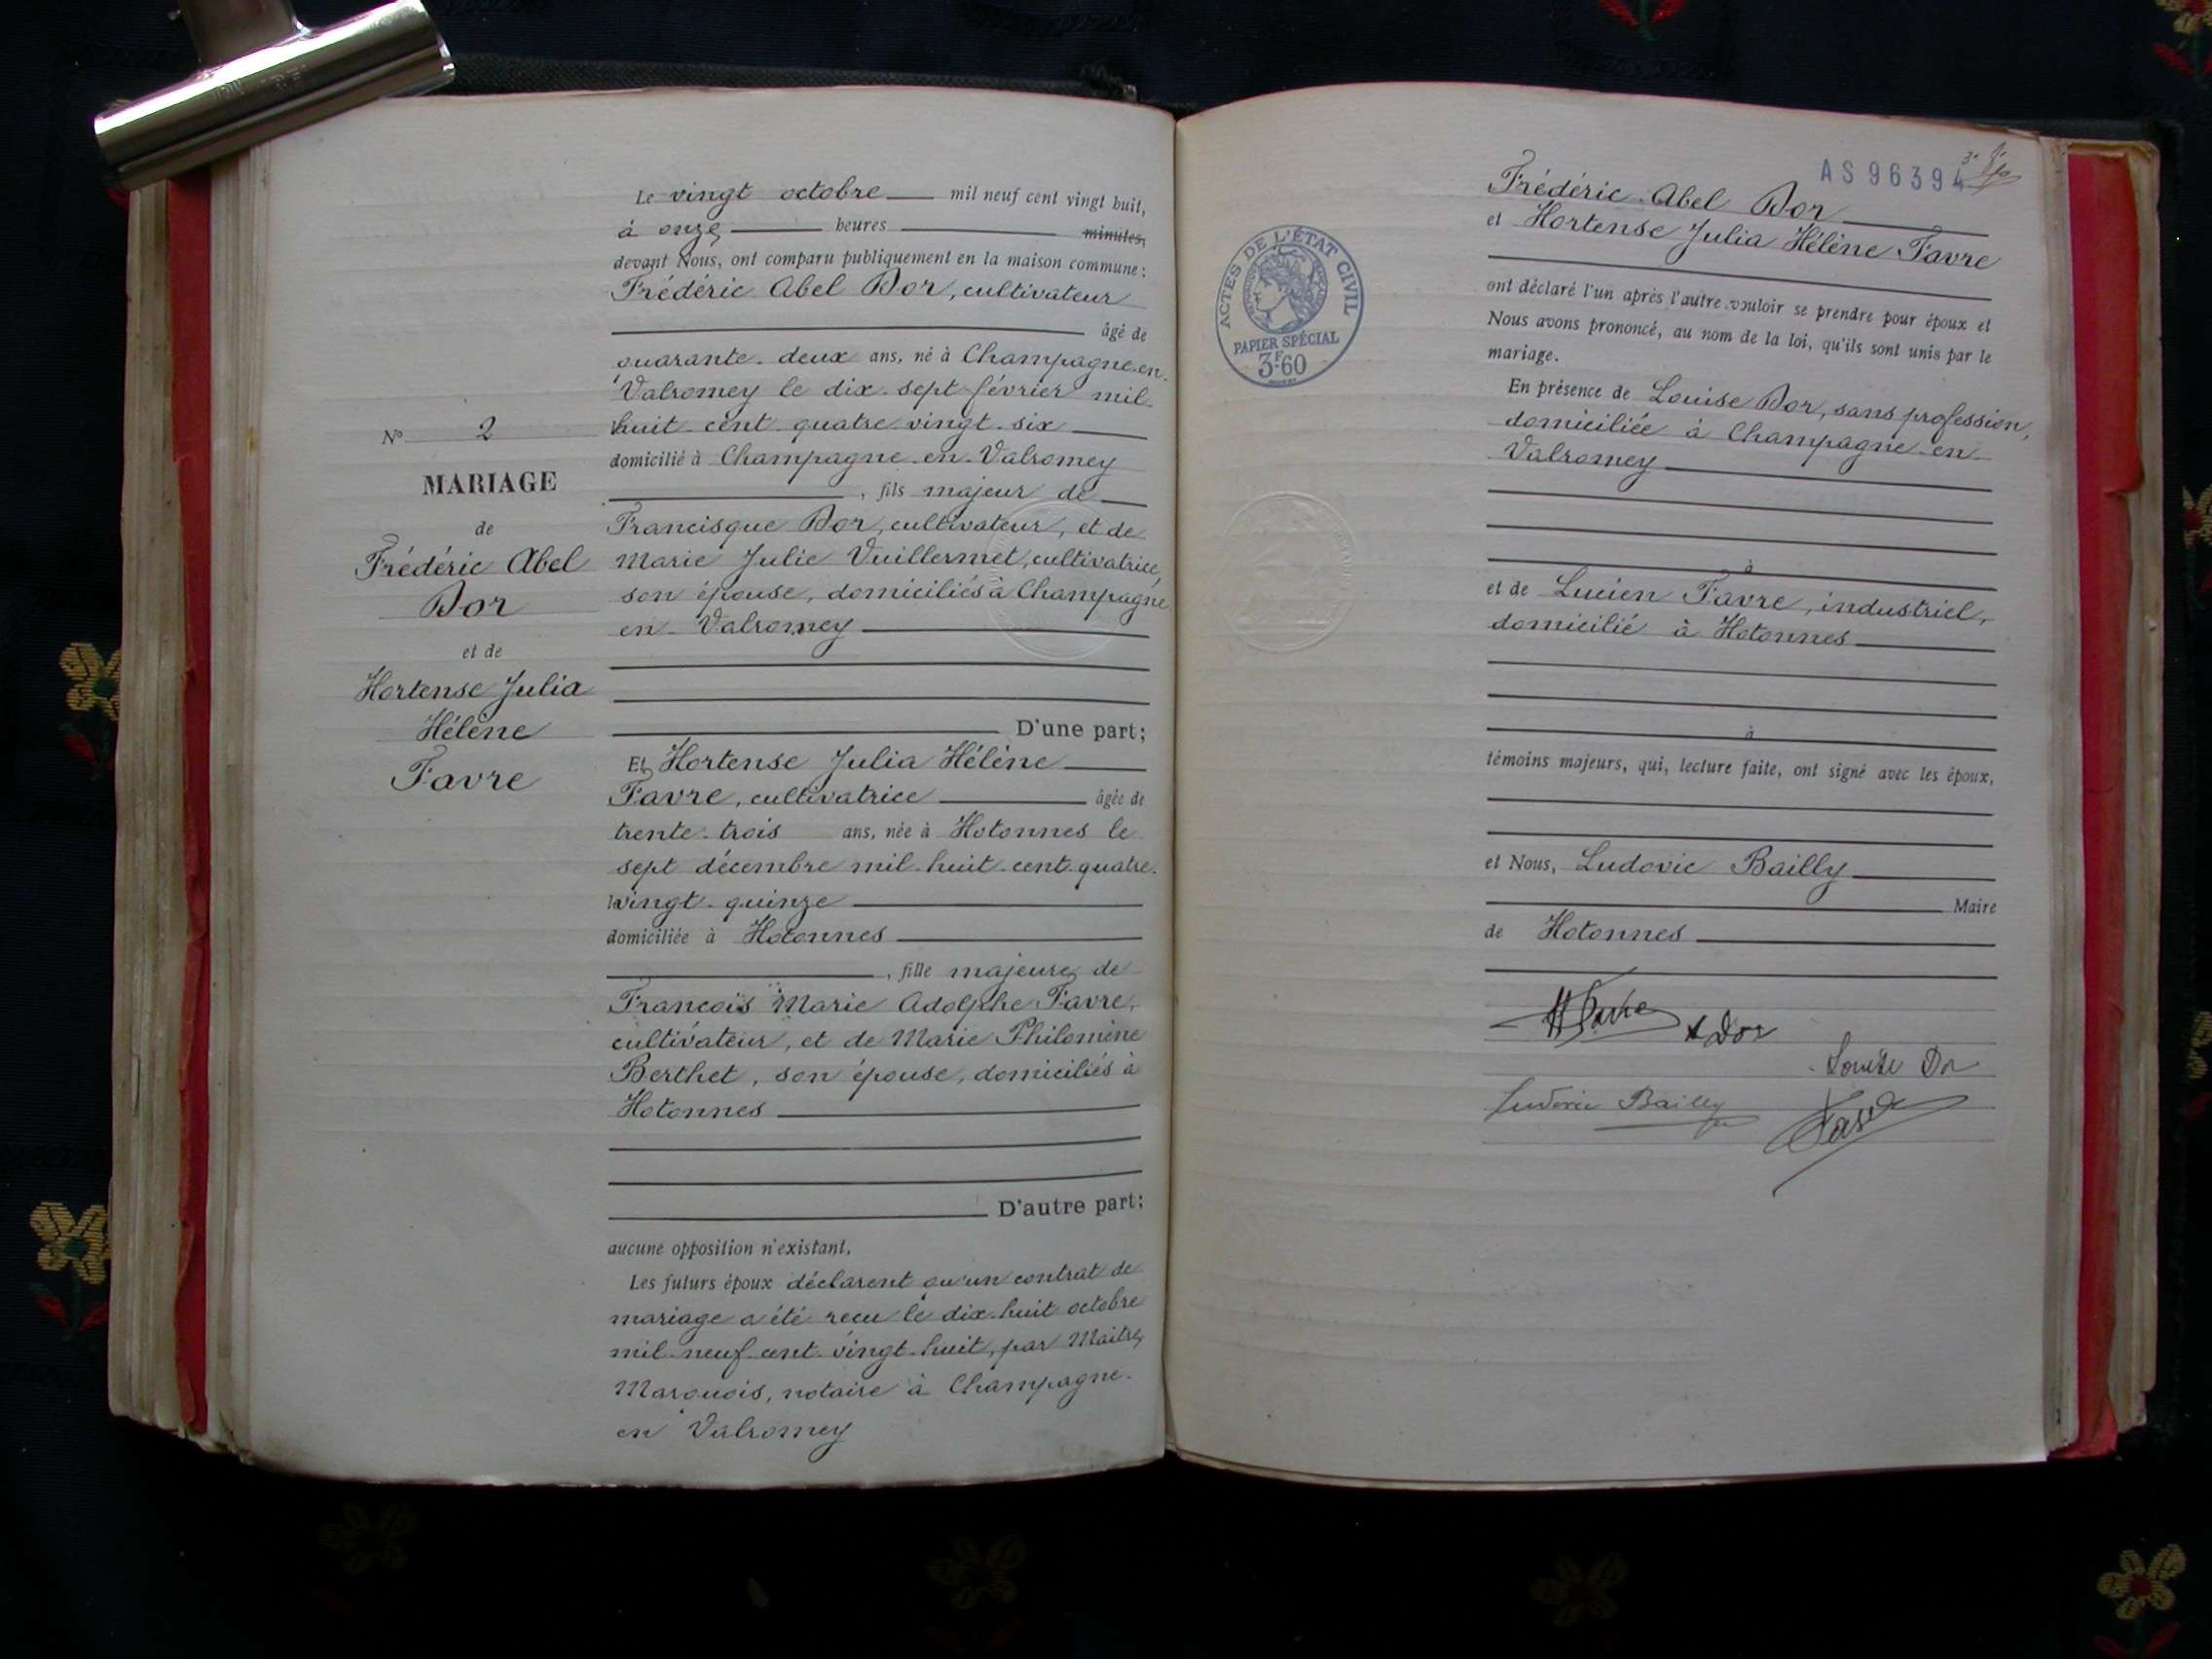 N° 2
MARIAGE
de
Frédéric Abel
Dor
et de
Hortense Julia
Hélène
Favre
Le vingt octobre mil neuf cent vingt huit,
à onze heures minutes,
devant Nous, ont comparu publiquement en la maison commune :
Frédéric Abel Dor, cultivateur
âgé de
quarante-deux ans, né à Champagne-en-
Valromey le dix-sept février mil-
huit-cent-quatre vingt-six
domicilié à Champagne-en-Valromey
, fils majeur de
Francisque Dor, cultivateur, et de
Marie Julie Vuillermet, cultivatrice,
son épouse, domiciliés à Champagne
en-Valromey
D'une part;
Et Hortense Julia Hélène
Favre, cultivatrice âgée de
trente-trois ans, née à Hotonnes le
sept décembre mil-huit-cent-quatre-
vingt-quinze
domiciliée à Hotonnes
, fille majeure de
François Marie Adolphe Favre,
cultivateur, et de Marie Philomène
Berthet, son épouse, domiciliés à
Hotonnes
D'autre part;
aucune opposition n'existant,
Les futurs époux déclarent qu'un contrat de
mariage a été recu le dix-huit octobre
mil-neuf-cent-vingt-huit, par Maitre
Marquois, notaire à Champagne-
en Valromey
AS 96394
ACTES DE L'ÉTAT CIVIL
PAPIER SPÉCIAL
3F60
Frédéric Abel Dor
et Hortense Julia Hélène Favre
ont déclaré l'un après l'autre vouloir se prendre pour époux et
Nous avons prononcé, au nom de la loi, qu'ils sont unis par le
mariage.
En présence de Louise Dor, sans profession,
domiciliée à Champagne-en-
Valromey
à
et de Lucien Favre, industriel,
domicilié à Hotonnes
à
témoins majeurs, qui, lecture faite, ont signé avec les époux,
et Nous, Ludovic Bailly
Maire
de Hotonnes
H Favre
A Dor
Louise Dor
Ludovic Bailly
Favre